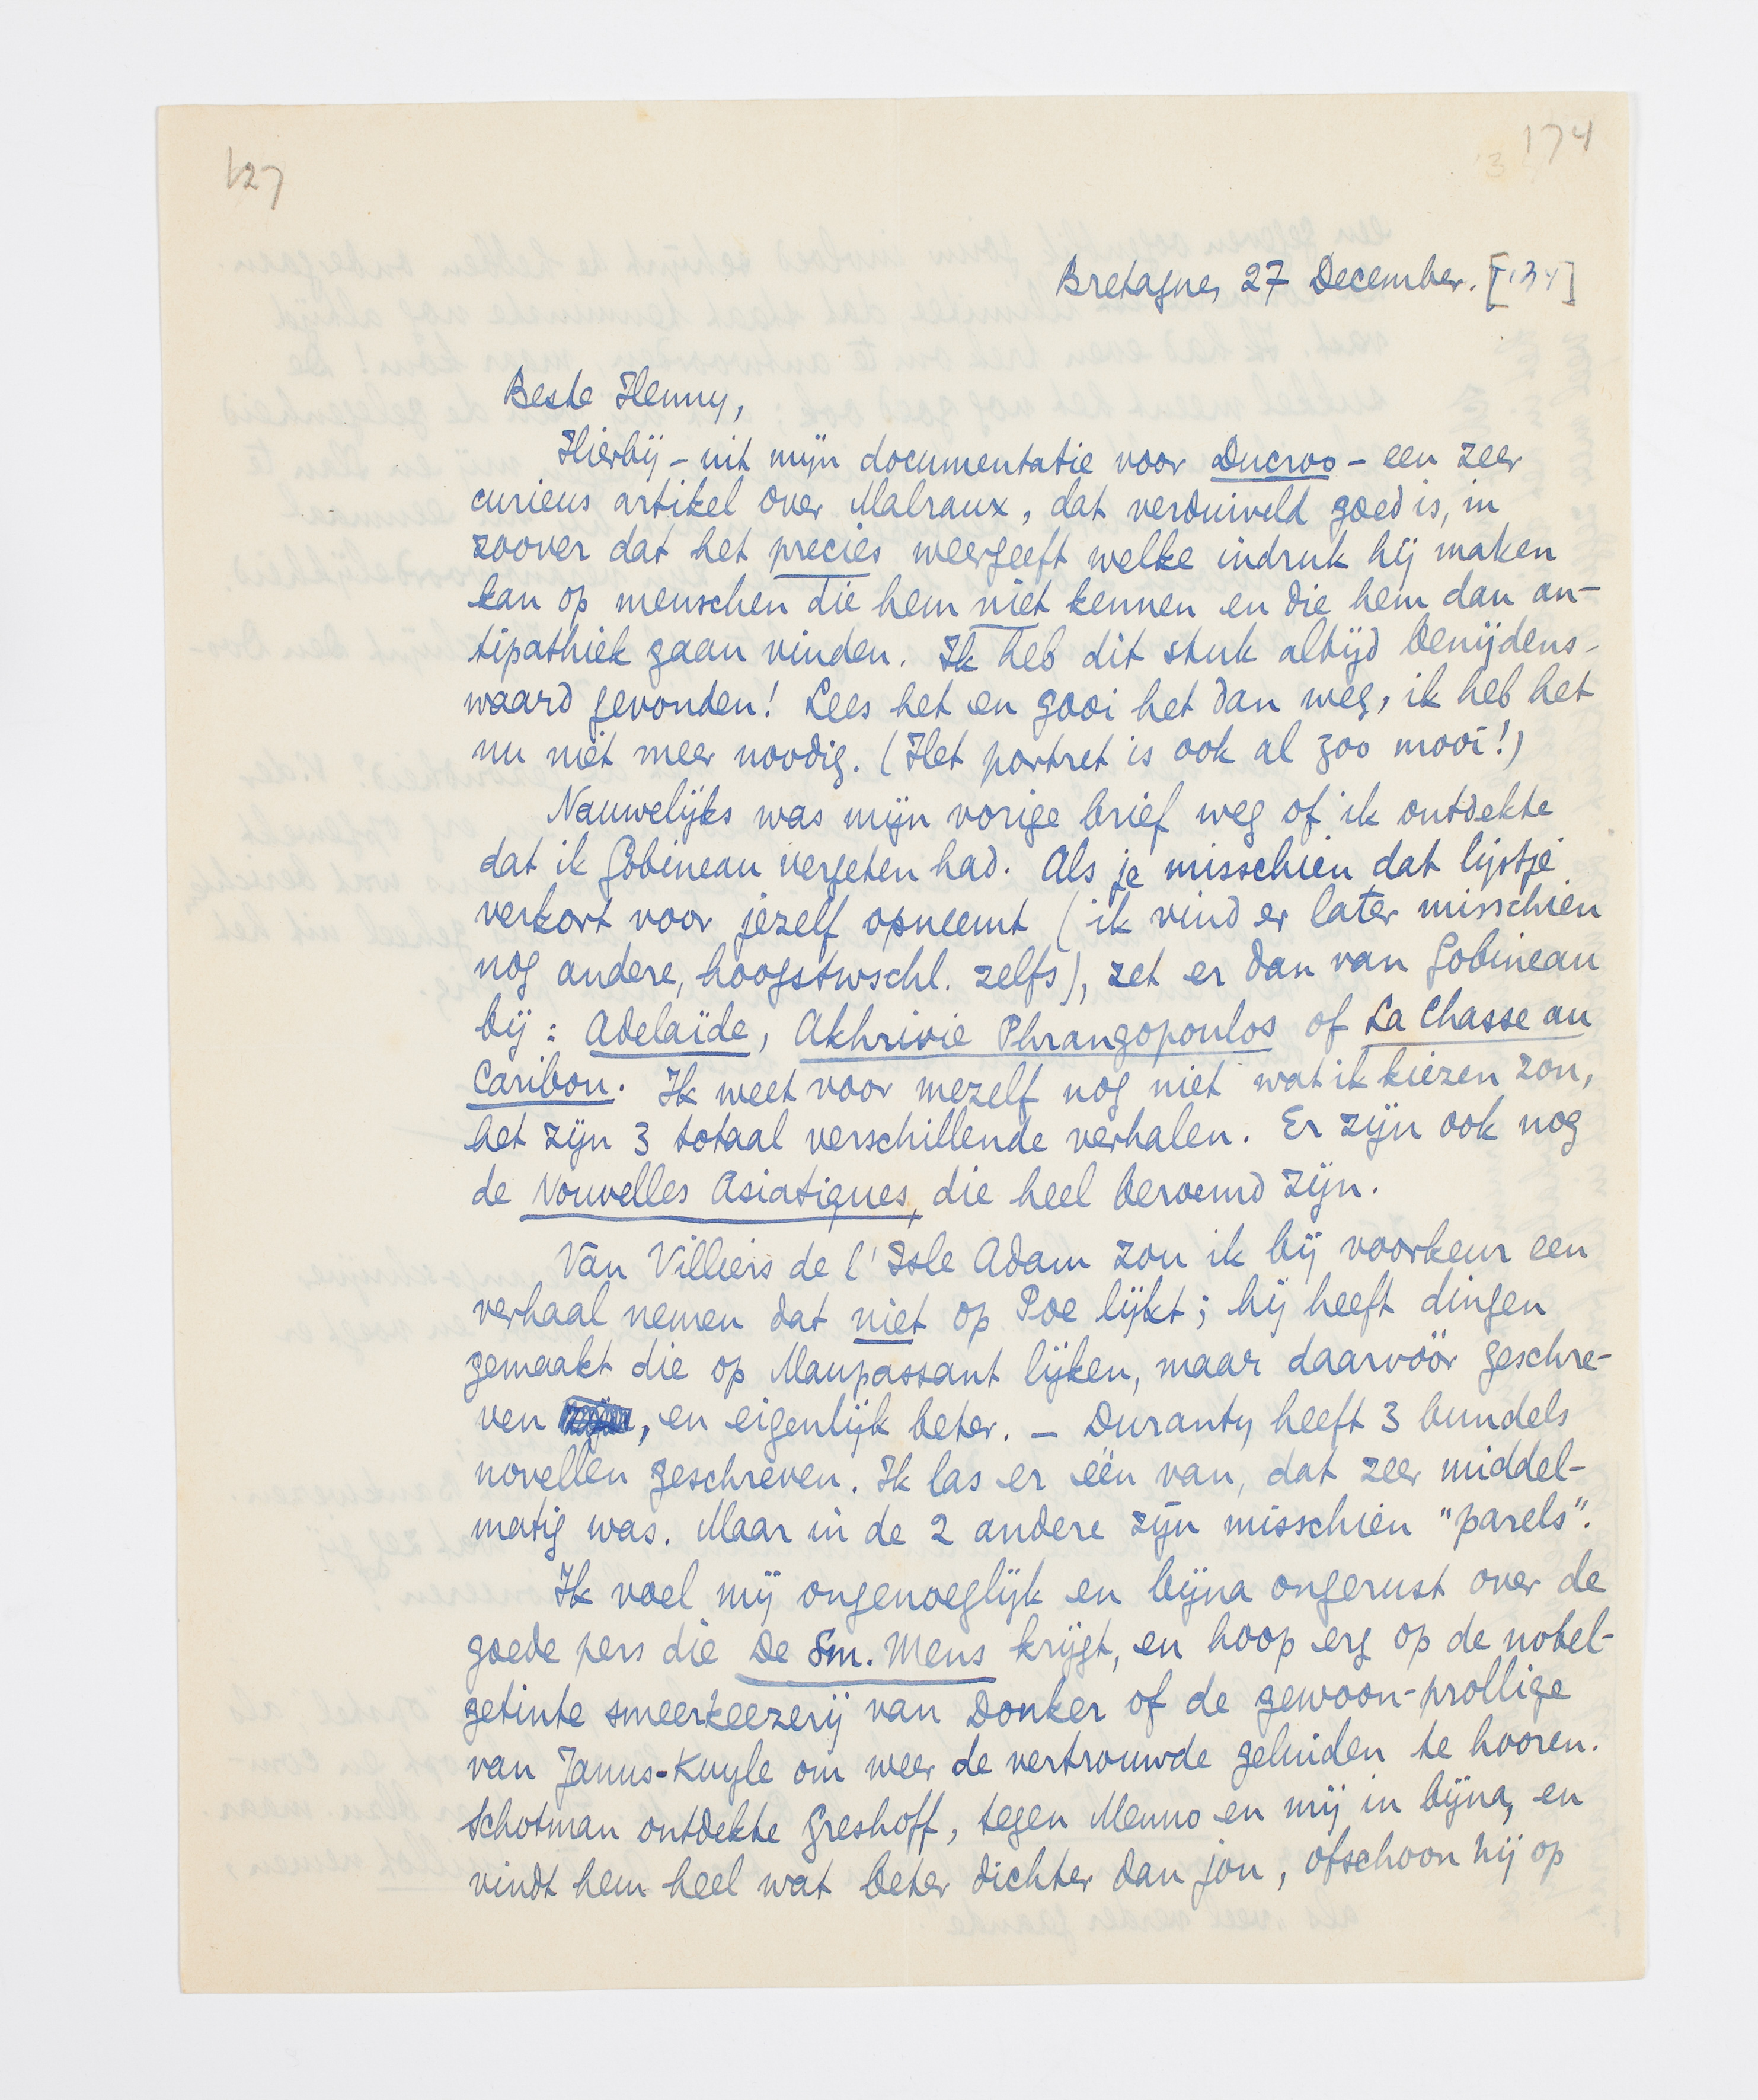 127
174
Bretagne, 27 December. ['34]
Beste Henny,
Hierbij – uit mijn documentatie voor Ducroo – een zeer
curieus artikel over Malraux, dat verduiveld goed is, in
zoover dat het precies weergeeft welke indruk hij maken
kan op menschen die hem niet kennen en die hem dan an-
tipathiek gaan vinden. Ik heb dit stuk altijd benijdens-
waard gevonden! Lees het en gooi het dan weg, ik heb het
nu niet meer noodig. (Het portret is ook al zoo mooi!)
Nauwelijks was mijn vorige brief weg of ik ontdekte
dat ik Gobineau vergeten had. Als je misschien dat lijstje
verkort voor jezelf opneemt (ik vind er later misschien
nog andere, hoogstwschl. zelfs), zet er dan van Gobineau
bij: Adelaïde, Akhrivie Phrangopoulos of La Chasse au
Caribou. Ik weet voor mezelf nog niet wat ik kiezen zou,
het zijn 3 totaal verschillende verhalen. Er zijn ook nog
de Nouvelles Asiatiques, die heel beroemd zijn.
Van Villiers de l'Isle Adam zou ik bij voorkeur een
verhaal nemen dat niet op Poe lijkt; hij heeft dingen
gemaakt die op Maupassant lijken, maar daarvóór geschre-
ven, en eigenlijk beter. – Duranty heeft 3 bundels
novellen geschreven. Ik las er één van, dat zeer middel-
matig was. Maar in de 2 andere zijn misschien "parels".
Ik voel mij ongenoeglijk en bijna ongerust over de
goede pers die De Sm. Mens krijgt, en hoop erg op de nobel-
getinte smeerkeezerij van Donker of de gewoon-prollige
van Janus-Kuyle om weer de vertrouwde geluiden te hooren.
Schotman ontdekte Greshoff, tegen Menno en mij in bijna, en
vindt hem heel wat beter dichter dan jou, ofschoon hij op